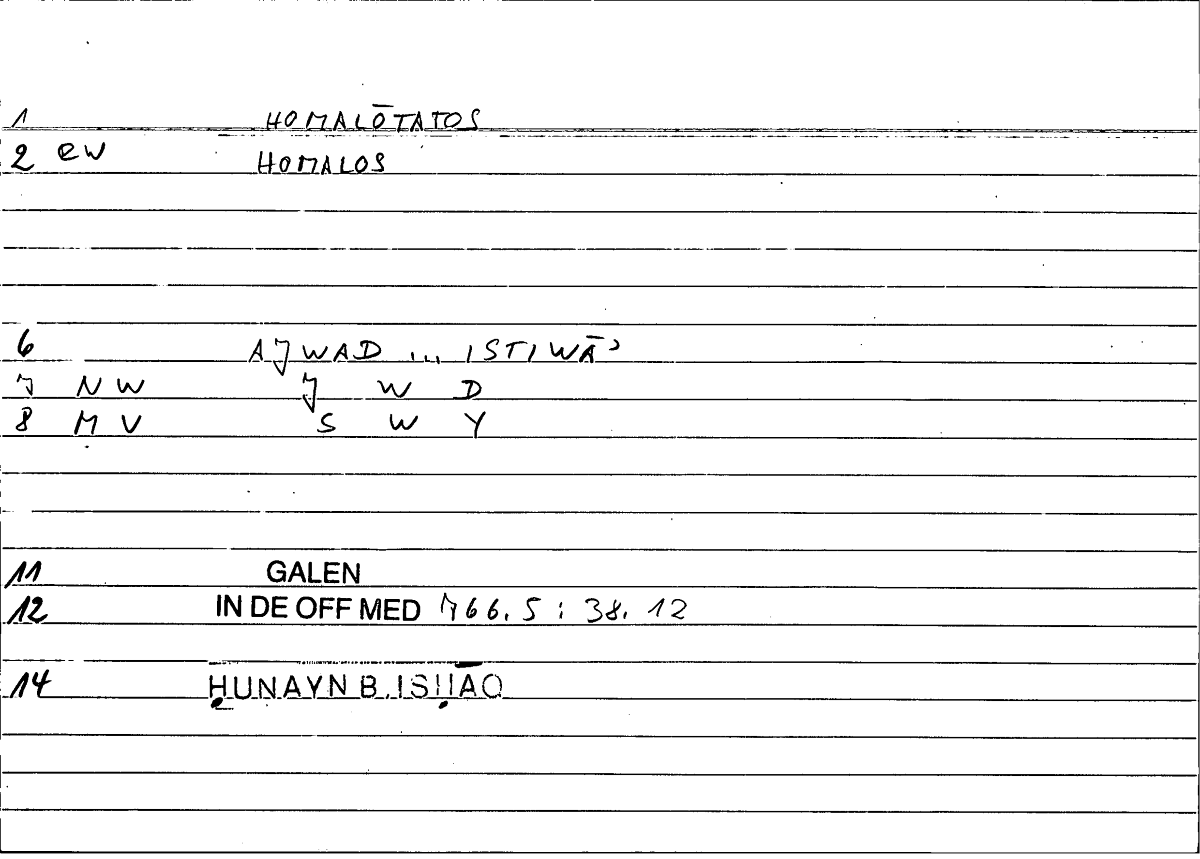 1 HOMALŌTATOS
2 ew HOMALOS
6 AJWAD ... ISTIWĀʾ
7 NW J W D
8 MV S W Y
11 GALEN
12 IN DE OFF MED 766.5 : 38.12
14 ḤUNAYN B. ISḤĀQ